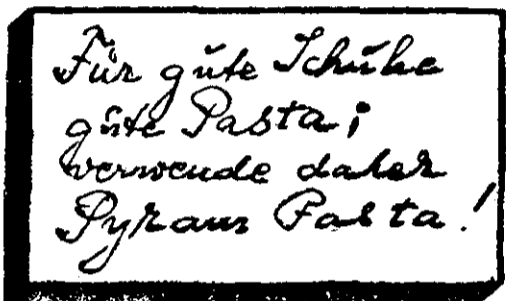 Für gute Schuhe
gute Pasta;
verwende daher
Pyram Pasta!